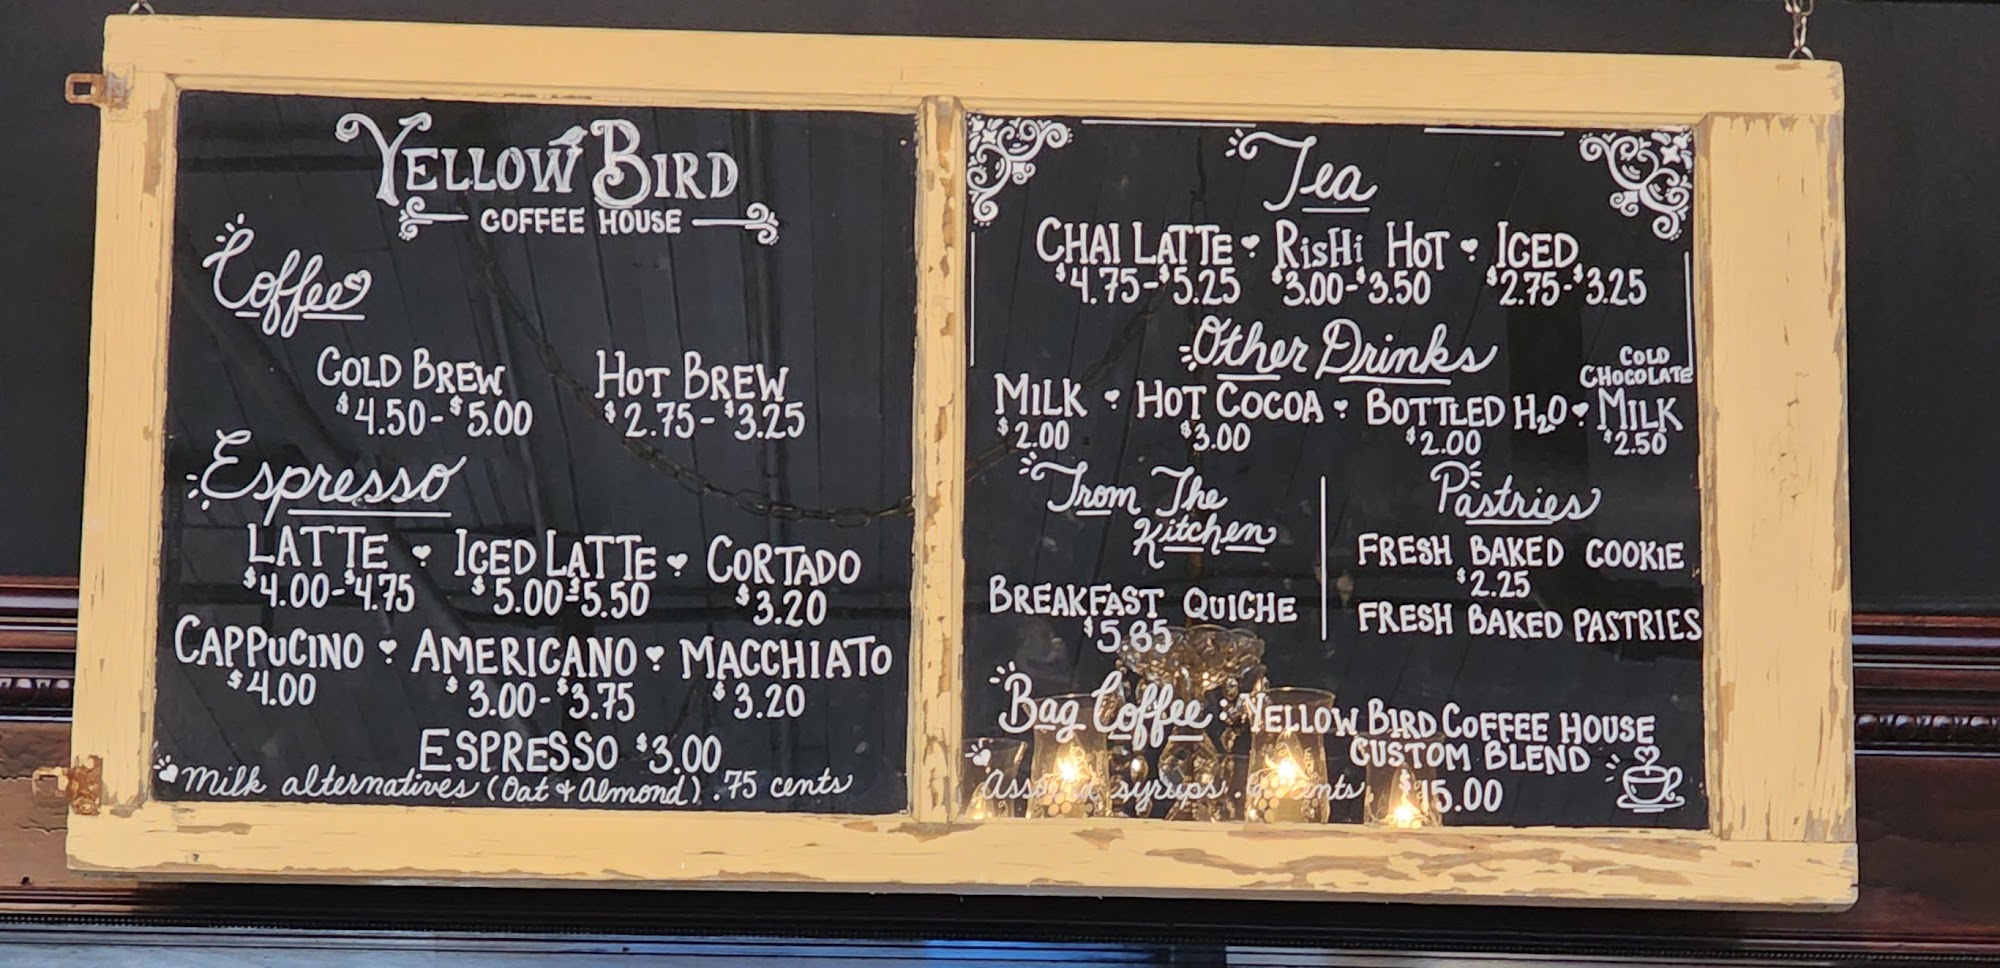 YELLOW BIRD
COFFEE HOUSE
Coffee
COLD BREW HOT BREW
$4.50-$5.00 $2.75-$3.25
Espresso
LATTE ICED LATTE CORTADO
$4.00-$4.75 $5.00-$5.50 $3.20
CAPPUCINO AMERICANO MACCHIATO
$4.00 $3.00-$3.75 $3.20
ESPRESSO $3.00
Milk alternatives (Oat & Almond) .75 cents
Tea
CHAI LATTE RISHI HOT ICED
$4.75-$5.25 $3.00-$3.50 $2.75-$3.25
Other Drinks
COLD
CHOCOLATE
MILK HOT COCOA BOTTLED H2O MILK
$2.00 $3.00 $2.00 $2.50
From The
Kitchen
BREAKFAST QUICHE
$5.85
Pastries
FRESH BAKED COOKIE
$2.25
FRESH BAKED PASTRIES
Bag Coffee: YELLOW BIRD COFFEE HOUSE
CUSTOM BLEND
$15.00
syrups